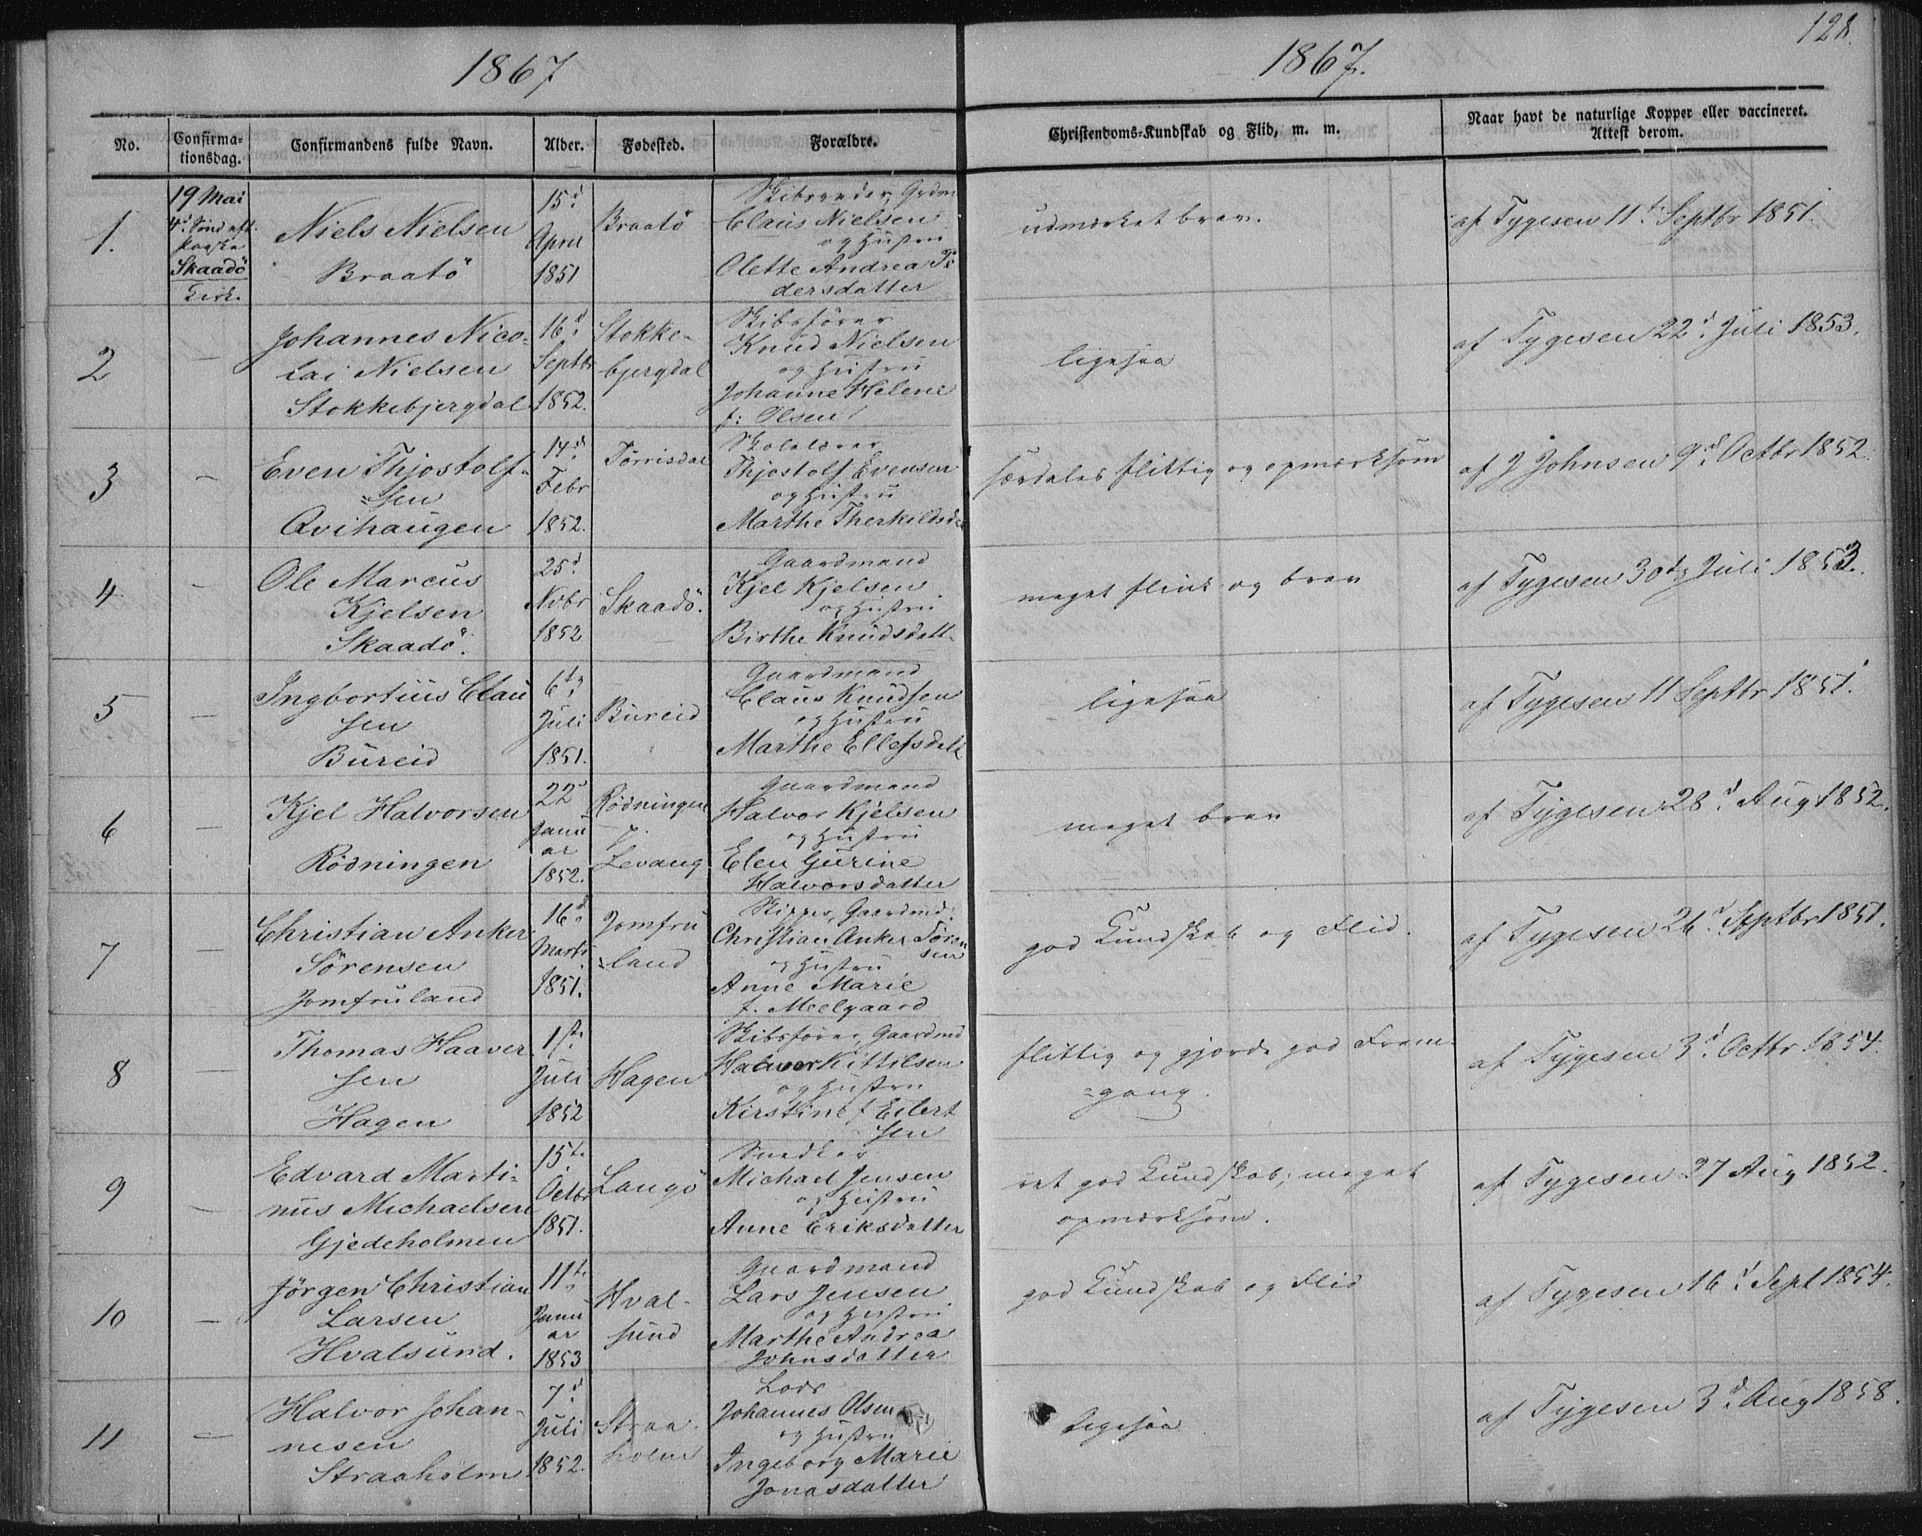 128.
1867
1867.
No.
Confirma-
tionsdag.
Confirmandens fulde Navn.
Alder.
Fødested.
Forældre.
Christendoms-Kundskab og Flid, m. m.
Naar havt de naturlige Kopper eller vaccineret.
Attest derom.
1.
19 Mai
4d. Sönd. eft.
Paaske
Skaadö
Kirk.
Niels Nielsen
Braatö
15d.
April
1851
Braatö
Skibsreder, Grdm
Claus Nielsen
og Hustru
Olette Andrea Pe
dersdatter
udmærket brav.
af Tygesen 11te Septbr 1851.
2
—
Johannes Nico-
lai Nielsen
Stokkebjergdal
16d.
Septbr
1852.
Stokke-
bjergdal
Skibsförer
Knud Nielsen
og Hustru
Johanne Helene
f: Olsen
ligesaa
af Tygesen 22d. Juli 1853.
3
—
Even Thjostolf-
sen
Qvihaugen
14d.
Febr
1852.
Törrisdal
Skolelærer
Thjostolf Evensen
og Hustru
Marthe Therkildsd.
særdeles flittig og opmærksom
af J Johnsen 9d. Octbr 1852.
4
—
Ole Marcus
Kjelsen
Skaadö.
25d.
Nvbr
1852
Skaadö.
Gaardmand
Kjel Kjelsen
og Hustru
Birthe Knudsdatt.
meget flink og brav
af Tygesen 30te Juli 1853.
5
—
Ingbortius Clau
sen
Bureid
6te
Juli
1851.
Bureid
Gaardmand
Claus Knudsen
og Hustru
Marthe Ellefsdatt
ligesaa
af Tygesen 11 Septbr 1851.
6
—
Kjel Halvorsen
Rödningen
22d
Janu
ar
1852.
Rödningen
p.
Levang
Gaardmand
Halvor Kjelsen
og Hustru
Elen Gurine
Halvorsdatter
meget brav
af Tygesen 28d. Aug 1852.
7
—
Christian Anker
Sörensen
Jomfruland
16d.
Marts
1851.
Jomfru
land
Skipper, Gaardmd.
Christian Anker Sören
sen
og Hustru
Anne Marie
f. Meelgaard
god Kundskab og Flid.
af Tygesen 26d. Septbr 1851.
8
Thomas Haaver
sen
Hagen
1ste
Juli
1852
Hagen
Skibsförer, Gaardmd
Halvor Kittilsen
og Hustru
Kirstine f Eilert
sen
flittig og gjorde god Frem-
gang.
af Tygesen 3d. Octbr 1854.
9
—
Edvard Marti-
nus Michaelsen
Gjedeholmen
15te
Octbr
1851.
Langö
Snedker
Michael Jensen
og Hustru
Anne Eriksdatter
ret god Kundskab, meget
opmærksom.
af Tygesen 27 Aug 1852.
10
—
Jörgen Christian
Larsen
Hvalsund.
11te
Janu
ar
1853
Hval-
sund
Gaardmand
Lars Jensen
og Hustru
Marthe Andrea
Johnsdatter
god Kundskab og Flid
af Tygesen 16d. Sept 1854.
11
—
Halvor Johan-
nesen
Straaholm
7d.
Juli
1852.
Straa-
holm
Lods
Johannes Olsen
og Hustru
Ingeborg Marie
Jonasdatter
ligesaa
af Tygesen 3d. Aug 1858.